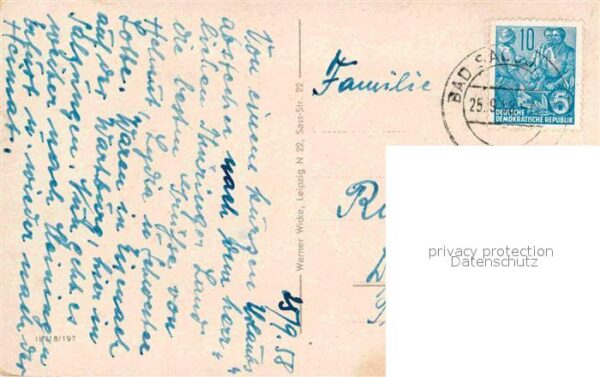 25/9.58
Von einem kurzen Urlaubs
abstecher nach dem herr-
lichen Thüringer Land
die besten Grüße von
Helmut, Lydia u. Schwester
Lotte. Waren in Eisenach
auf der Wartburg, hier in
Salzungen. Nun geht es
weiter nach Meiningen
befor is wieder nach der
Heimat.
II/18/197
Werner Wicke, Leipzig N 22, Sass-Str. 22
Familie
BAD SAL
25.9
10
DEUTSCHE
DEMOKRATISCHE REPUBLIK
privacy protection
Datenschutz